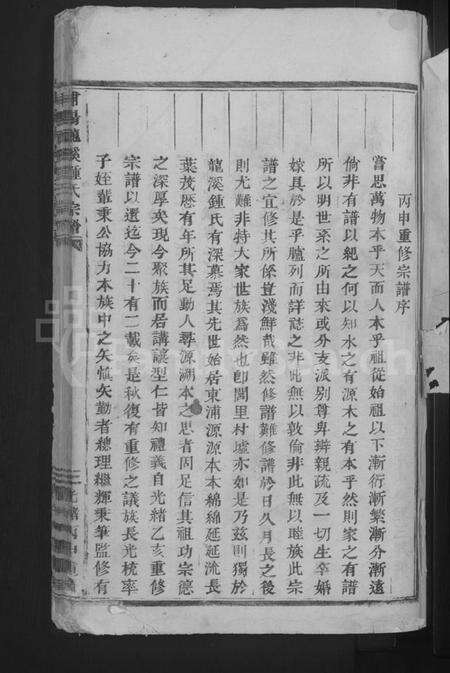 丙申重修宗譜序
嘗思萬物本乎天而人本乎祖從始祖以下漸衍漸繁漸分漸遠
倘非有譜以紀之何以知水之有源木之有本乎然則家之有譜
所以明世系之所由來或分支派別尊卑辨親疏及一切生卒婚
嫁具於是乎臚列而詳誌之非此無以敦倫非此無以睦族此宗
譜之宜修其所係豈淺鮮哉雖然修譜難修譜於日久月長之後
則尤難非特大家世族為然也即閭里村墟亦如是乃茲則獨於
龍溪鍾氏有深冀焉其先世始居東浦源源本本綿綿延延流長
葉茂歷有年所其足動人尋源溯本之思者固足信其祖功宗德
之深厚矣現今聚族而居講讓型仁皆知禮義自光緒乙亥重修
宗譜以還迄今二十有二載矣是秋復有重修之議族長光梳率
子姪輩秉公協力本族中之矢慎矢勤者總理繼輝秉筆監修有
浦陽龍溪鍾氏宗譜